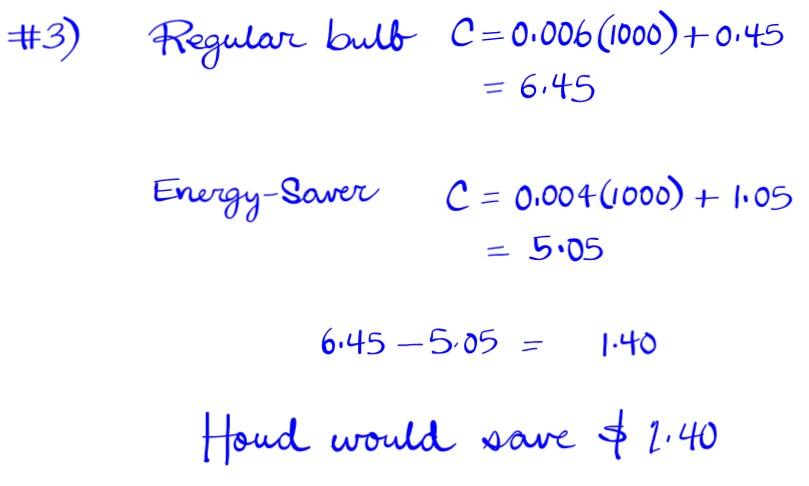 #3) Regular bulb C = 0.006(1000) + 0.45
= 6.45
Energy-Saver C = 0.004(1000) + 1.05
= 5.05
6.45 – 5.05 = 1.40
Houd would save $ 1.40